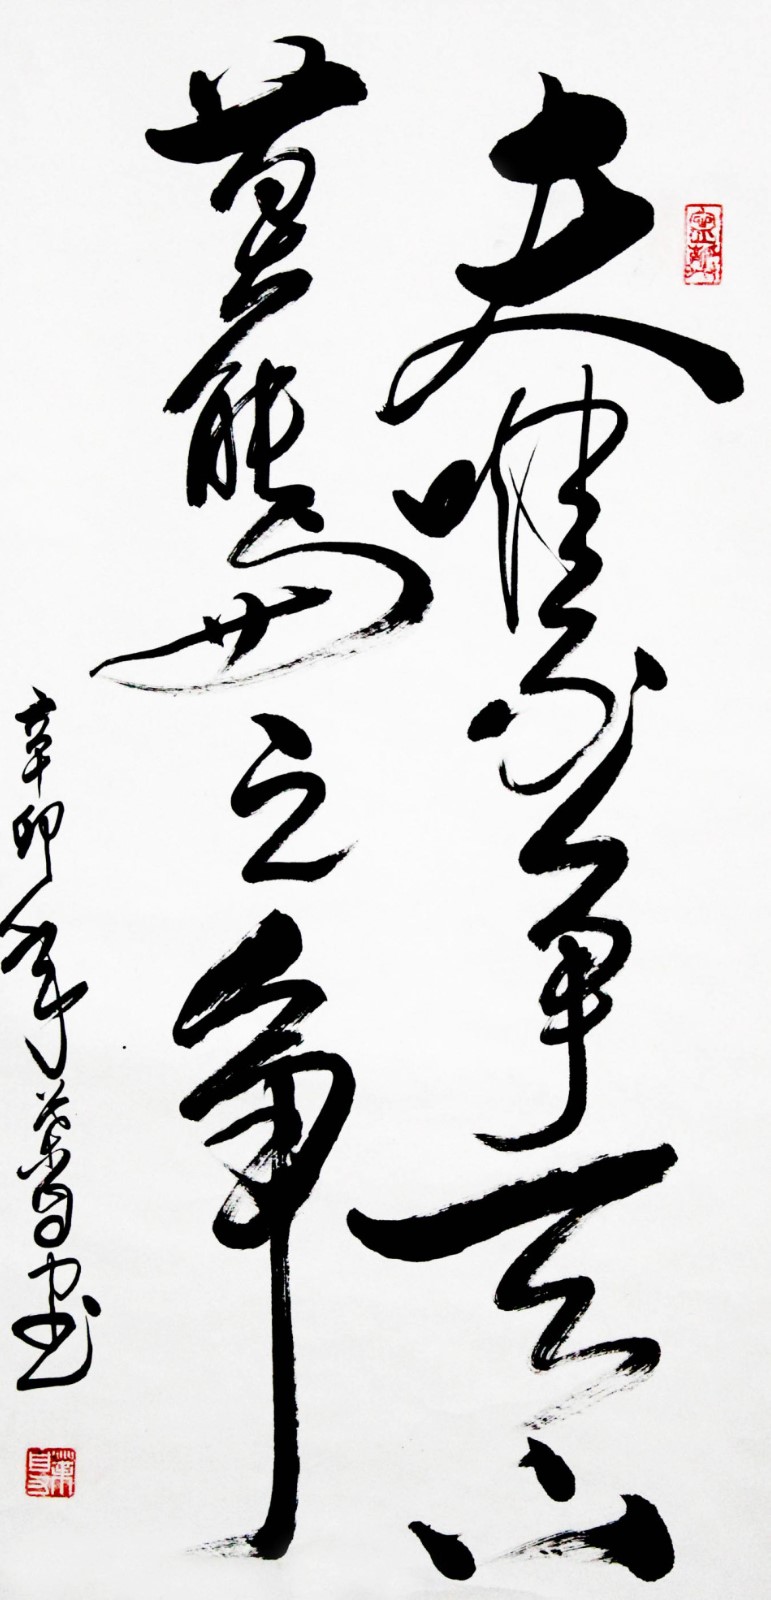 夫唯不争天下
莫能與之争
辛卯年